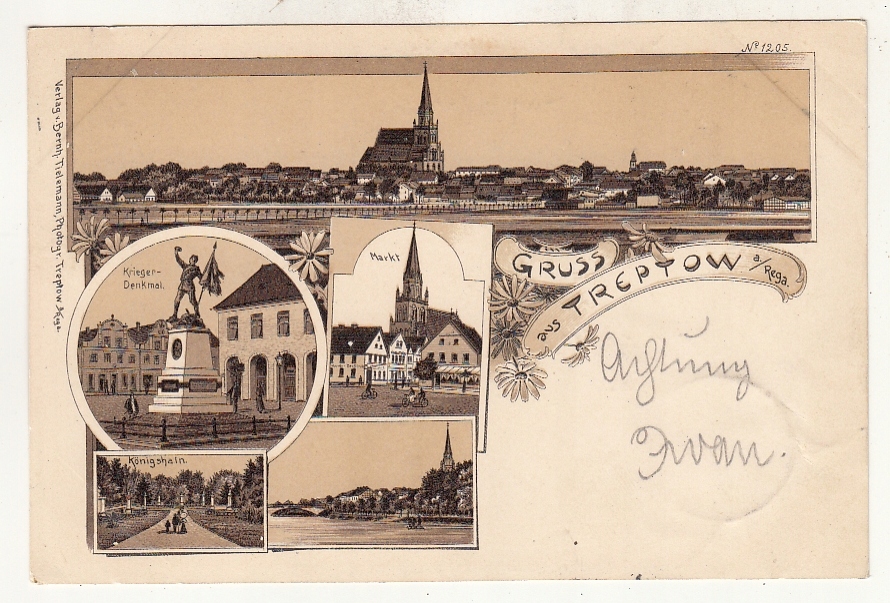 No 1205.
Verlag v. Bernh. Tielemann, Photogr. Treptow
Krieger-
Denkmal.
Markt
GRUSS
aus TREPTOW a/Rega.
Achtung
Königshain.